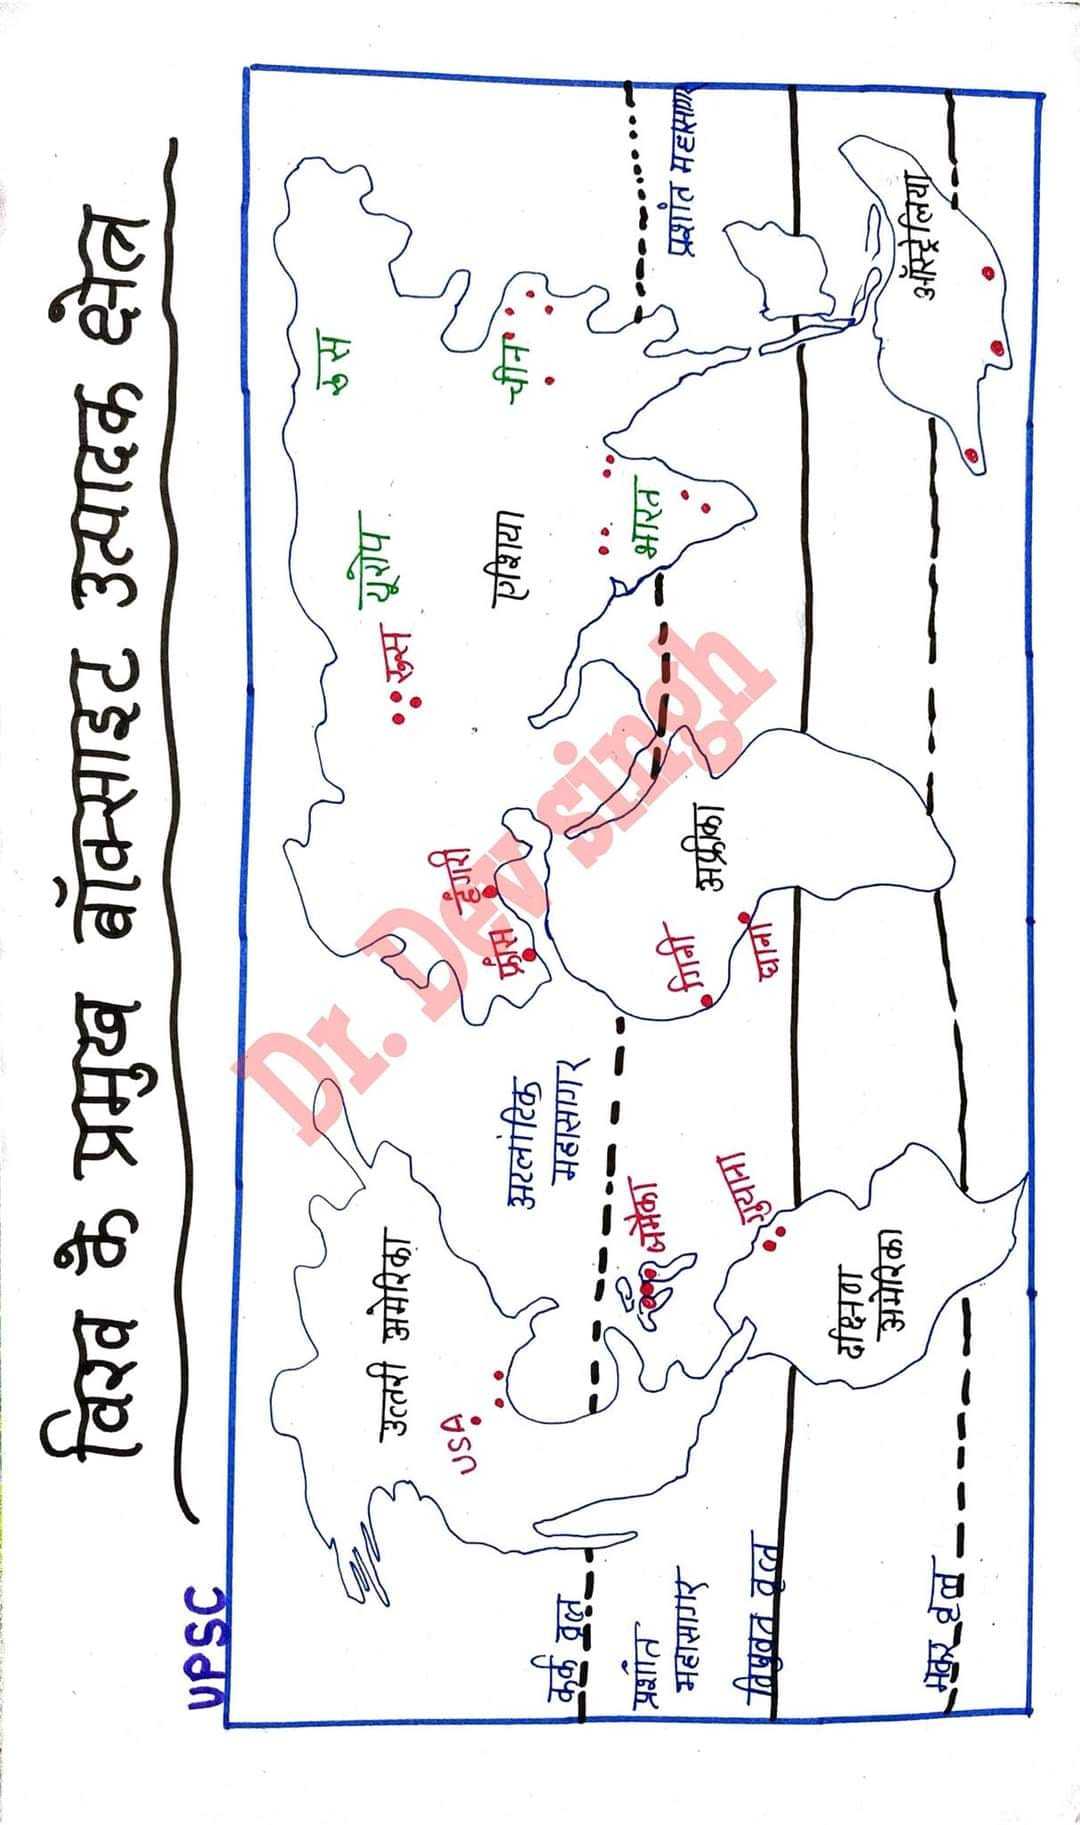 विश्व के प्रमुख बॉक्साइट उत्पादक क्षेत्र
UPSC
उत्तरी अमेरिका
USA
अटलांटिक
महासागर
जमैका
गुयाना
दक्षिण
अमेरिका
कर्क वृत्त
प्रशांत
महासागर
विषुवत वृत्त
मकर वृत्त
हंगरी
फ्रांस
गिनी
घाना
अफ्रीका
रूस
यूरोप
एशिया
रूस
चीन
भारत
प्रशांत महासागर
ऑस्ट्रेलिया
Dr. Dev singh